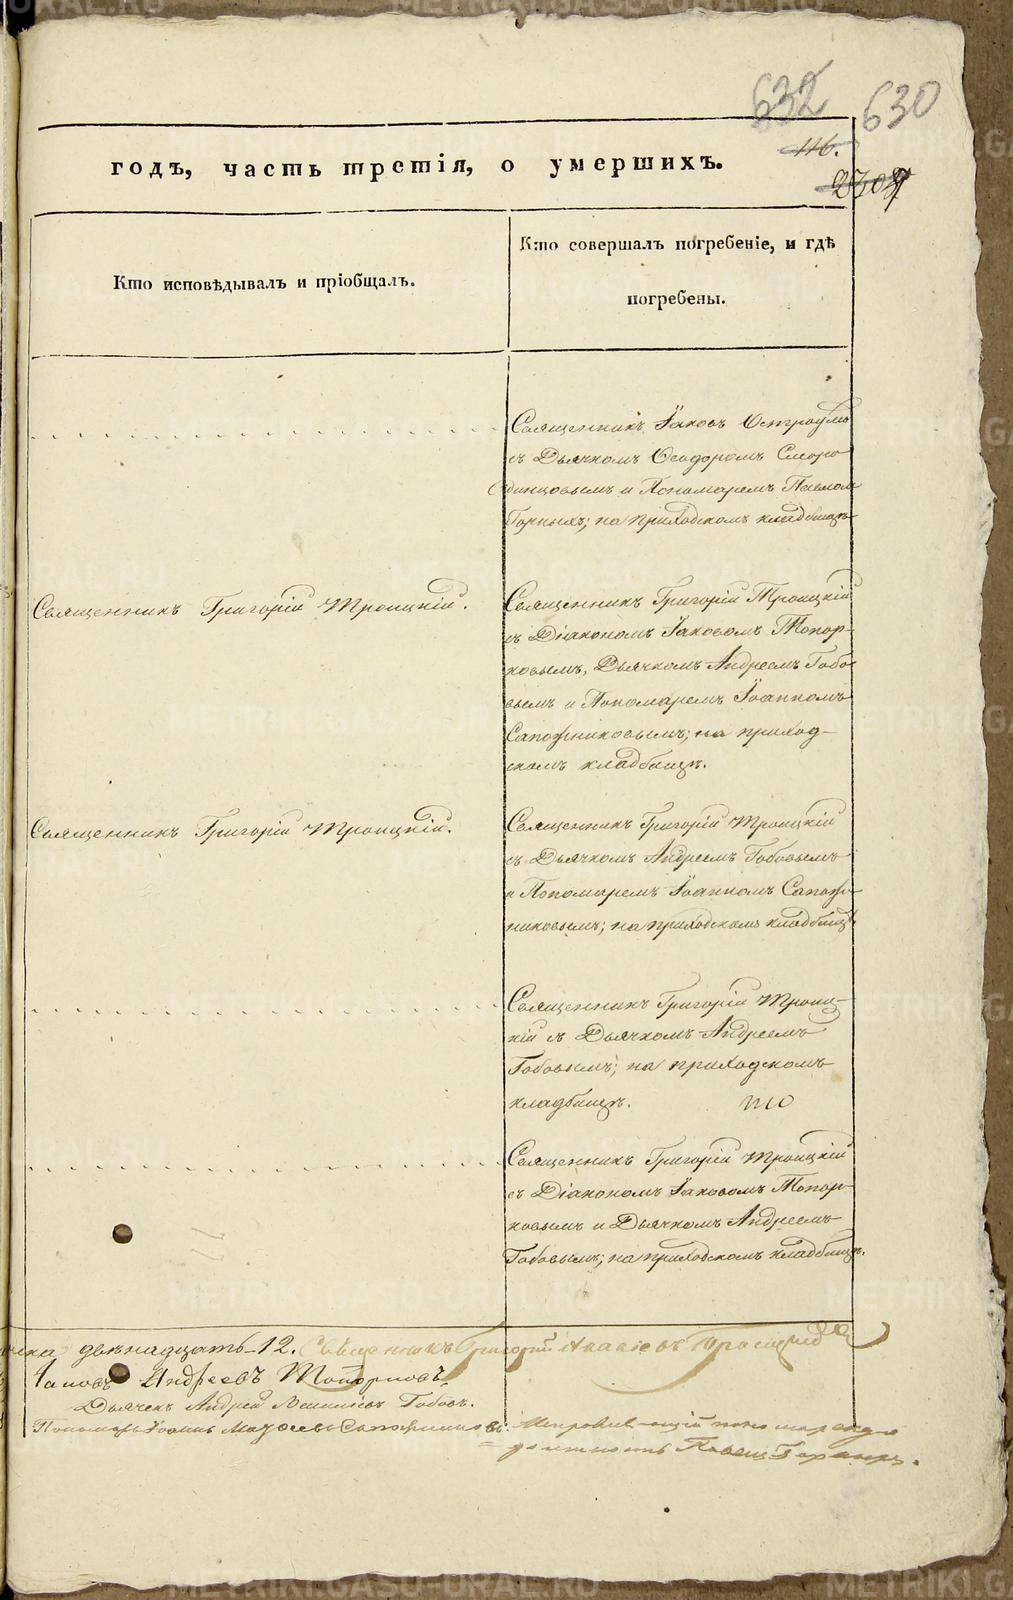 632 630
116.
годъ, часть третія, о умершихъ.
2309
Кто исповѣдывалъ и пріобщалъ.
Кто совершалъ погребеніе, и гдѣ
погребены.
Священникъ Іаковъ Остроумо
съ Дьячкомъ Ѳеодоромъ Сморо
динцовымъ и Пономаремъ Павлом
Горныхъ; на приходскомъ кладбищѣ
Священникъ Григорій Троицкій.
Священникъ Григорій Троицкій
съ Діакономъ Іаковомъ Топор-
ковымъ, Дьячкомъ Андреемъ Гобо
вымъ и Пономаремъ Іоанномъ
Сапожниковымъ; на приход-
скомъ кладбищѣ.
Священникъ Григорій Троицкій.
Священникъ Григорій Троицкій
съ Дьячкомъ Андреемъ Гобовымъ
и Пономаремъ Іоанномъ Сапож-
никовымъ; на приходскомъ кладбищѣ.
Священникъ Григорій Троиц-
кій съ Дьячкомъ Андреемъ
Гобовымъ; на приходскомъ
кладбищѣ.
Священникъ Григорій Троицкій
съ Діакономъ Іаковомъ Топор-
ковымъ и Дьячкомъ Андреемъ
Гобовымъ; на приходскомъ кладбищѣ.
двѣнадцать 12. Священникъ Григорій Троицкій
Іаковъ Андреевъ Топорковъ
Дьячекъ Андрей Гобовъ.
Пономарь Іоаннъ Сапожниковъ.
должность Павелъ